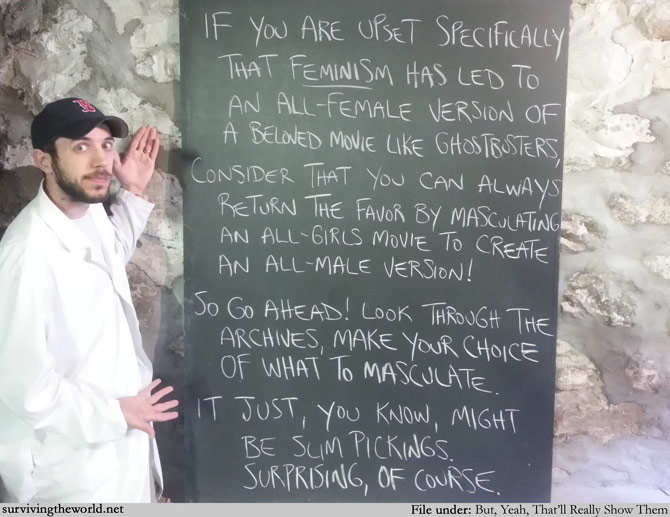 IF YOU ARE UPSET SPECIFICALLY
THAT FEMINISM HAS LED TO
AN ALL-FEMALE VERSION OF
A BELOVED MOVIE LIKE GHOSTBUSTERS,
CONSIDER THAT YOU CAN ALWAYS
RETURN THE FAVOR BY MASCULATING
AN ALL-GIRLS MOVIE TO CREATE
AN ALL-MALE VERSION!
SO GO AHEAD! LOOK THROUGH THE
ARCHIVES, MAKE YOUR CHOICE
OF WHAT TO MASCULATE.
IT JUST, YOU KNOW, MIGHT
BE SLIM PICKINGS.
SURPRISING, OF COURSE.
survivingtheworld.net
File under: But, Yeah, That'll Really Show Them